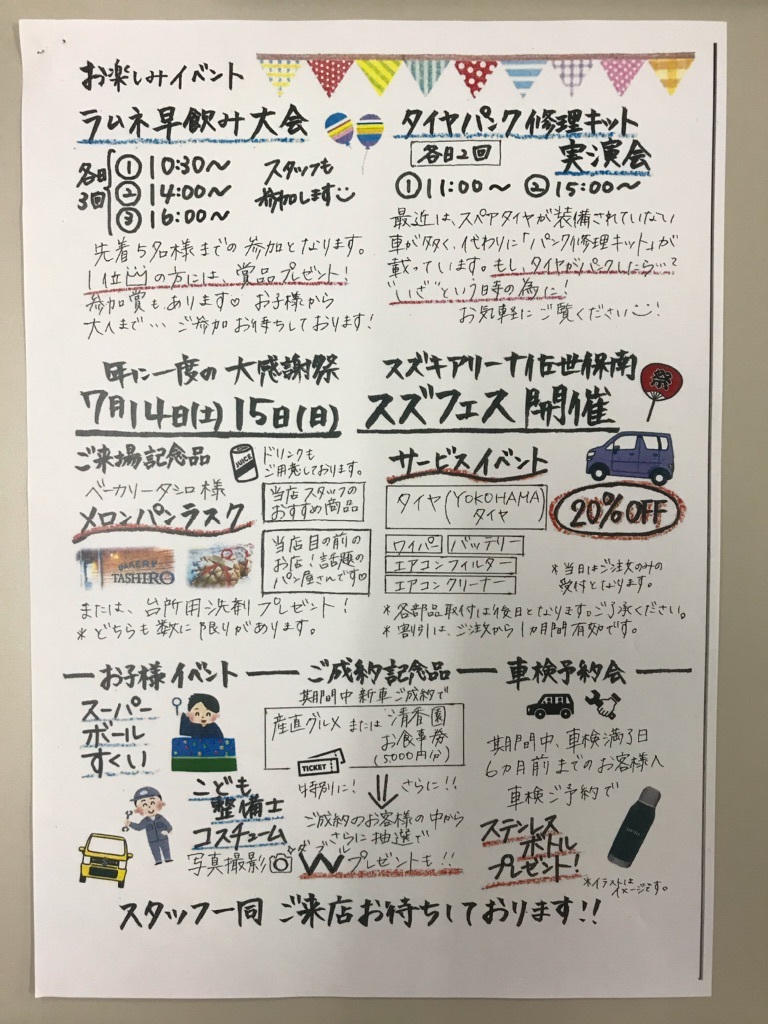 お楽しみイベント
ラムネ早飲み大会
各日3回
① 10:30～
② 14:00～
③ 16:00～
スタッフも
参加します
先着5名様までの参加となります。
1位の方には、賞品プレゼント!
参加賞もあります♡ お子様から
大人まで… ご参加お待ちしております!
タイヤパンク修理キット
実演会
各日2回
① 11:00～ ② 15:00～
最近は、スペアタイヤが装備されていない
車が多く、代わりに「パンク修理キット」が
載っています。もし、タイヤがパンクしたら…って
"いざ"という時の為に!
お気軽にご覧ください!
年に一度の大感謝祭
7月14日(土)15日(日)
スズキアリーナ佐世保南
スズフェス開催
祭
ご来場記念品
JUICE
ドリンクも
ご用意しております。
ベーカリータシロ様
メロンパンラスク
当店スタッフの
おすすめ商品
BAKERY
TASHIRO
当店目の前の
お店!話題の
パン屋さんです♡
または、台所用洗剤プレゼント!
*どちらも数に限りがあります。
サービスイベント
タイヤ(YOKOHAMAタイヤ)
20%OFF
ワイパー
バッテリー
エアコンフィルター
エアコンクリーナー
*当日はご注文のみの
受付となります。
*各部品取付は後日となります。ご了承ください。
*割引は、ご注文から1カ月間有効です。
お子様イベント
スーパー
ボール
すくい
こども
整備士
コスチューム
写真撮影
ご成約記念品
期間中新車ご成約で
産直グルメ または 清香園
お食事券
(5,000円分)
TICKET
特別に! さらに!!
ご成約のお客様の中から
さらに抽選で
ダブル
Wプレゼントも!!
車検予約会
期間中、車検満了日
6カ月前までのお客様へ
車検ご予約で
ステンレス
ボトル
プレゼント!
*イラストは
イメージです。
スタッフ一同 ご来店お待ちしております!!